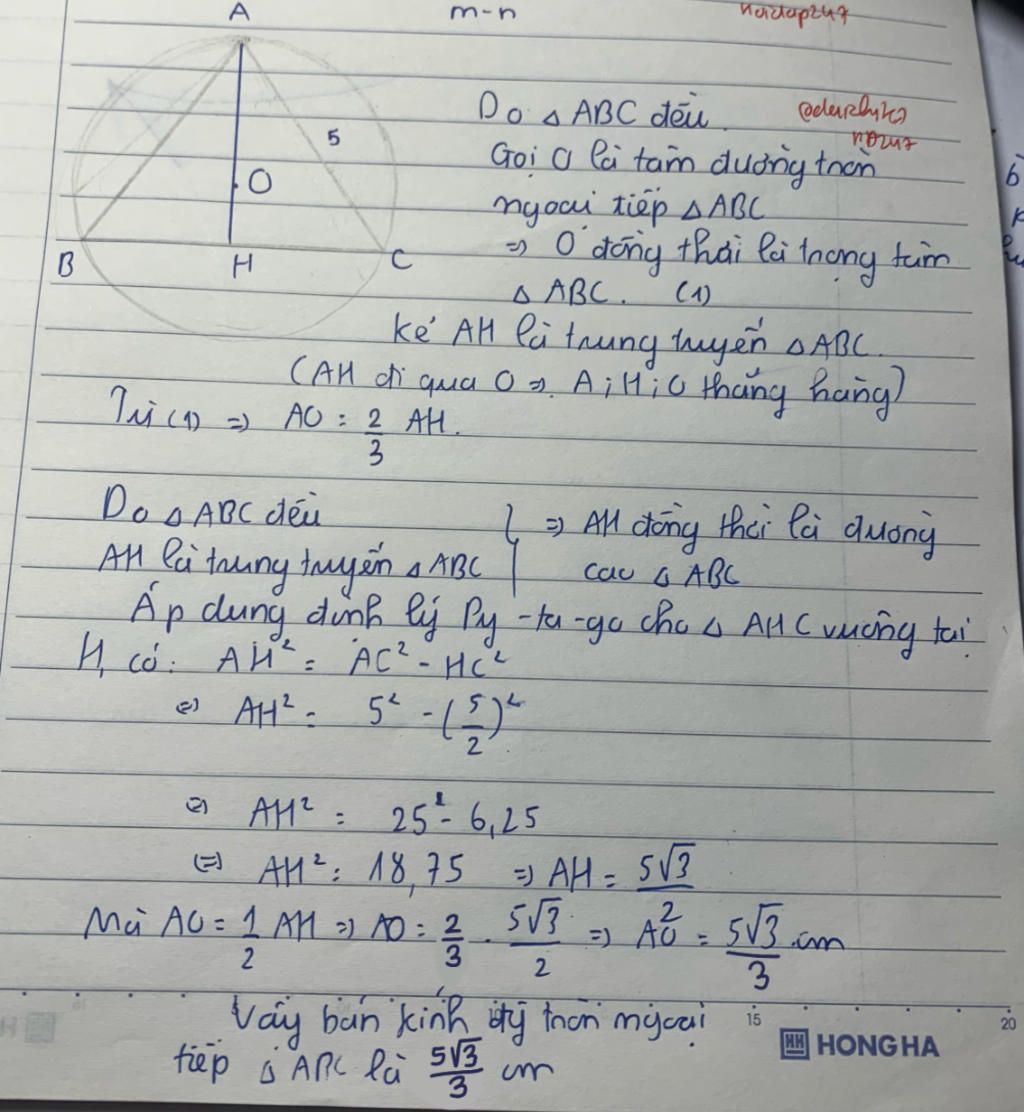 A
m-n
hoidap247
5
O
B
H
C
Do △ABC đều.
nD247
Gọi O là tâm đường tròn
ngoại tiếp △ABC
=> O đồng thời là trọng tâm
△ABC. (1)
Kẻ AH là trung tuyến △ABC.
(AH đi qua O => A;H;O thẳng hàng)
Từ (1) => AO = 2/3 AH.
Do △ABC đều
AH là trung tuyến △ABC
=> AH đồng thời là đường
cao △ABC
Áp dụng định lý Py-ta-go cho △AHC vuông tại
H, có: AH² = AC² - HC²
<=> AH² = 5² - (5/2)²
<=> AH² = 25² - 6,25
<=> AH² = 18,75 => AH = 5√3/2
Mà AO = 1/2 AH => AO = 2/3 . 5√3/2 => AO = 5√3/3 cm
Vậy bán kính đg tròn ngoại
tiếp △ABC là 5√3/3 cm
15
20
HH HONG HA